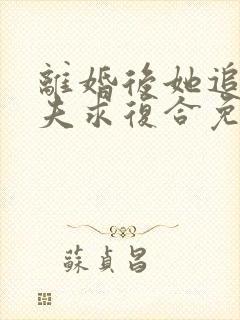 離婚後她追
夫求復合免
蘇貞昌